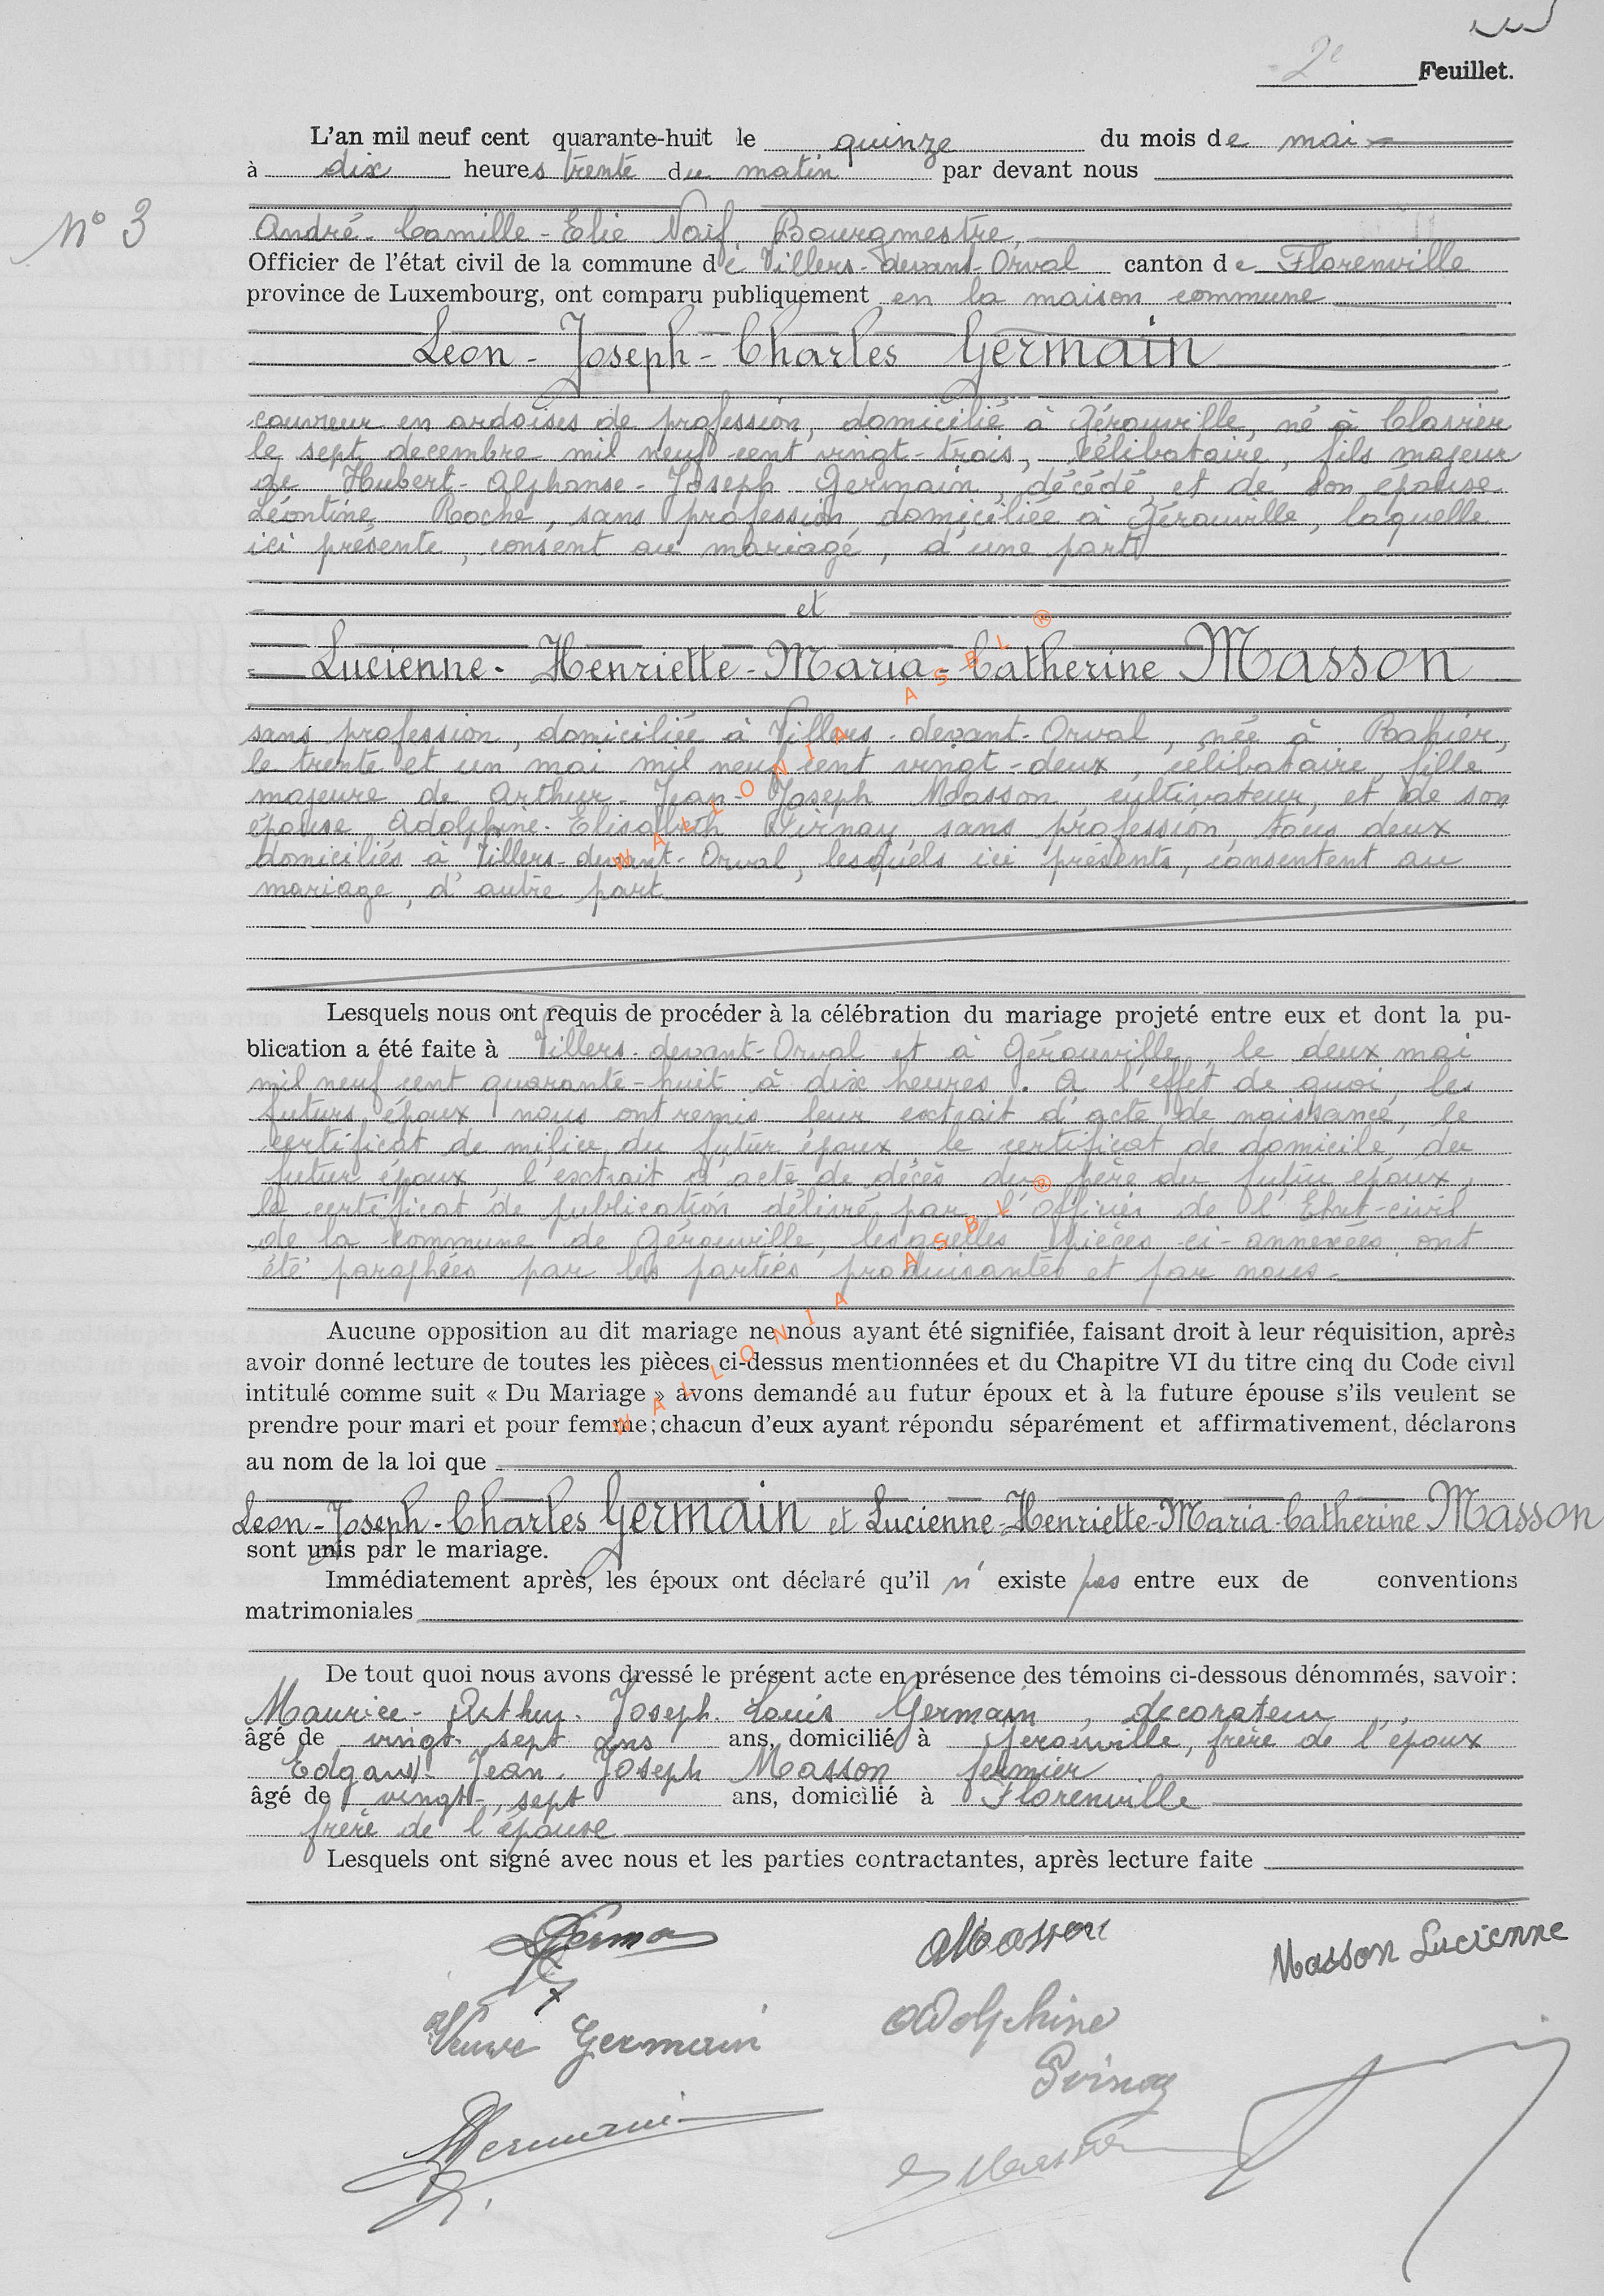 2e Feuillet.
L'an mil neuf cent quarante-huit le quinze du mois de mai
à dix heures trente du matin par devant nous
N° 3
André-Camille-Elie Naif, Bourgmestre,
Officier de l'état civil de la commune de Villers-devant-Orval canton de Florenville
province de Luxembourg, ont comparu publiquement en la maison commune
Leon-Joseph-Charles Germain
couvreur en ardoises de profession, domicilié à Gérouville, né à Clavier
le sept décembre mil neuf cent vingt-trois, célibataire, fils majeur
de Hubert-Alphonse-Joseph Germain, décédé et de son épouse
Léontine Roche, sans profession, domiciliée à Gérouville, laquelle
ici présente, consent au mariage, d'une part
et
Lucienne-Henriette-Maria-Catherine Masson
sans profession, domiciliée à Villers-devant-Orval, née à Rahier,
le trente et un mai mil neuf cent vingt-deux, célibataire, fille
majeure de Arthur-Jean-Joseph Masson, cultivateur, et de son
épouse Adolphine-Elisabeth sans profession, tous deux
domiciliés à Villers-devant-Orval, lesquels ici présents, consentent au
mariage, d'autre part
Lesquels nous ont requis de procéder à la célébration du mariage projeté entre eux et dont la pu-
blication a été faite à Villers-devant-Orval et à Gérouville, le deux mai
mil neuf cent quarante-huit à dix heures. A l'effet de quoi, les
futurs époux nous ont remis leur extrait d'acte de naissance, le
certificat de milice du futur époux, le certificat de domicile du
futur époux, l'extrait d'acte de décès du père du futur époux,
le certificat de publication délivré par l'Officier de l'Etat-civil
de la commune de Gérouville, lesquelles pièces ci-annexées ont
été paraphées par les parties produisantes et par nous.
Aucune opposition au dit mariage ne nous ayant été signifiée, faisant droit à leur réquisition, après
avoir donné lecture de toutes les pièces ci-dessus mentionnées et du Chapitre VI du titre cinq du Code civil
intitulé comme suit « Du Mariage » avons demandé au futur époux et à la future épouse s'ils veulent se
prendre pour mari et pour femme; chacun d'eux ayant répondu séparément et affirmativement, déclarons
au nom de la loi que
Leon-Joseph-Charles Germain et Lucienne-Henriette-Maria-Catherine Masson
sont unis par le mariage.
Immédiatement après, les époux ont déclaré qu'il n' existe pas entre eux de conventions
matrimoniales
De tout quoi nous avons dressé le présent acte en présence des témoins ci-dessous dénommés, savoir:
Maurice-Arthur-Joseph-Louis Germain, décorateur,
âgé de vingt-sept ans ans, domicilié à Gérouville, frère de l'époux
Edgard-Jean-Joseph Masson fermier
âgé de vingt-sept ans, domicilié à Florenville
frère de l'épouse
Lesquels ont signé avec nous et les parties contractantes, après lecture faite
AMasson
Masson Lucienne
Veuve Germain
Adolphine
Germain
E Masson
WALLONIA ASBL ®
WALLONIA ASBL ®